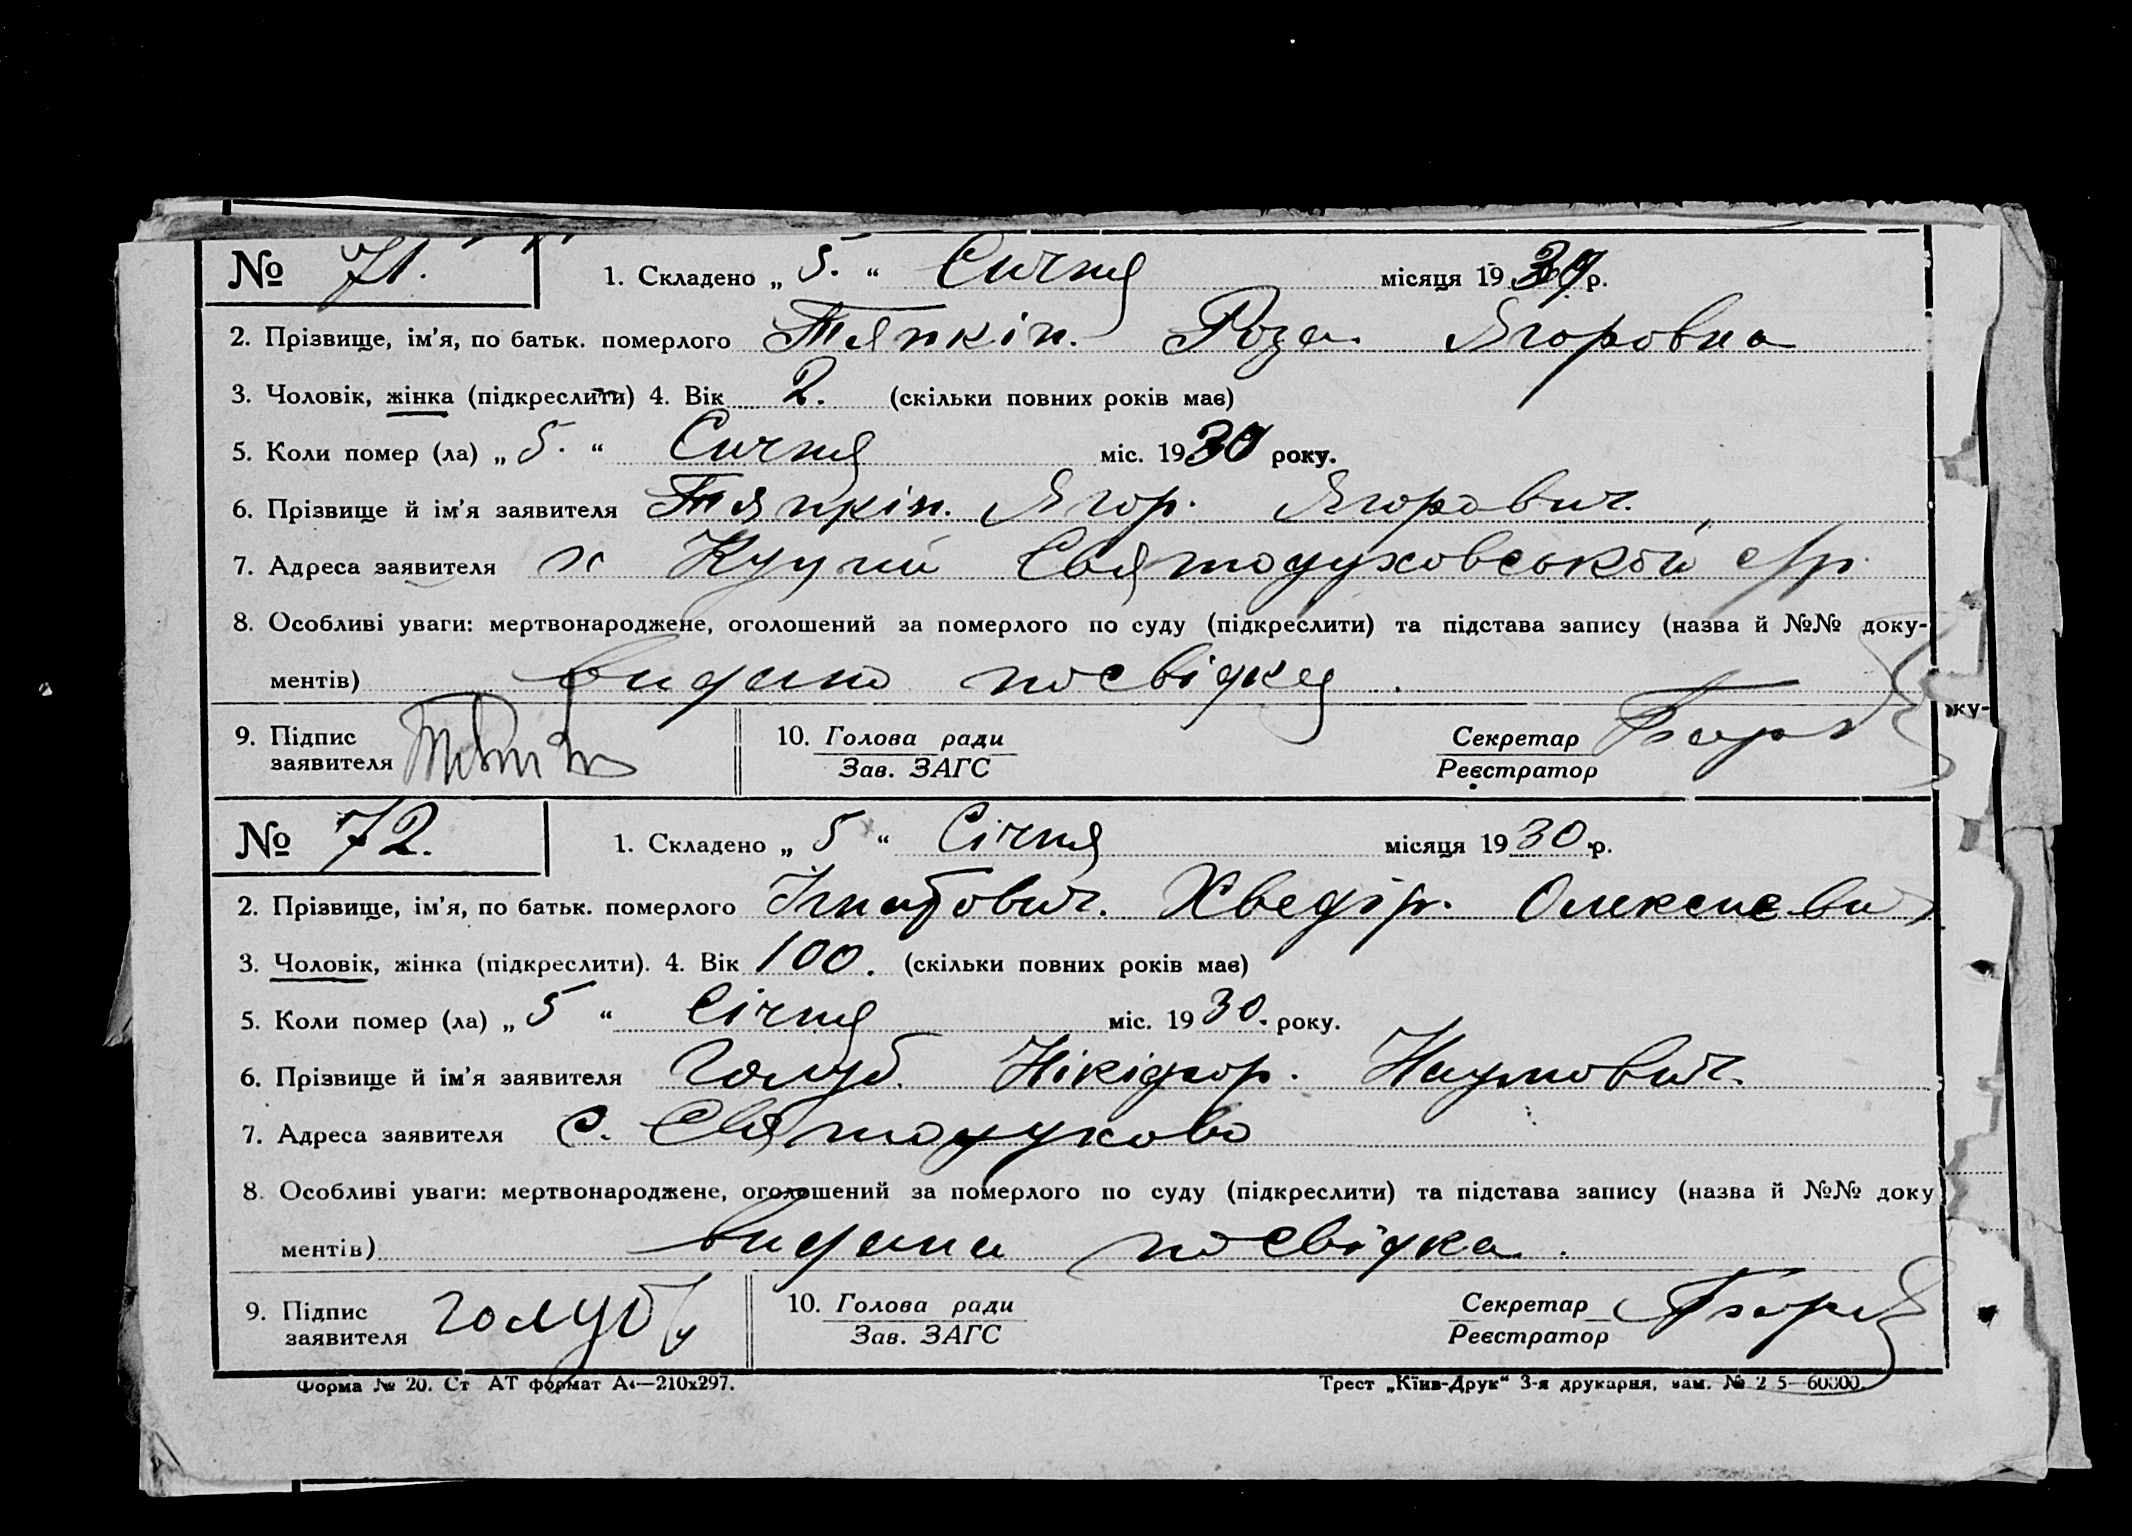 № 71. 1. Складено „ 5. “ Сичня місяця 1930 р.
2. Прізвище, ім'я, по батьк. померлого Тяпкін. Роза. Ягоровна
3. Чоловік, жінка (підкреслити) 4. Вік 2. (скільки повних років має)
5. Коли помер (ла) „ 5. “ Сичня міс. 1930 року.
6. Прізвище й ім'я заявителя Тяпкін. Ягор. Ягорович.
7. Адреса заявителя х Святодуховської с/р.
8. Особливі уваги: мертвонароджене, оголошений за померлого по суду (підкреслити) та підстава запису (назва й №№ доку-
ментів) видано посвідку.
ку-
9. Підпис 10. Голова ради Секретар
заявителя Зав. ЗАГС Реєстратор
№ 72. 1. Складено „ 5 “ Січня місяця 1930 р.
2. Прізвище, ім'я, по батьк. померлого Ігнатович. Хведір. Олексиєвич
3. Чоловік, жінка (підкреслити). 4. Вік 100. (скільки повних років має)
5. Коли помер (ла) „ 5 “ Січня міс. 1930. року.
6. Прізвище й ім'я заявителя Голуб. Нікіфор. Наумович.
7. Адреса заявителя с. Святодухово
8. Особливі уваги: мертвонароджене, оголошений за померлого по суду (підкреслити) та підстава запису (назва й №№ доку
ментів) видана посвідка.
9. Підпис Голуб 10. Голова ради Секретар
заявителя Зав. ЗАГС Реєстратор
Форма № 20. Ст АТ формат А4—210х297. Трест „Київ-Друк“ 3-я друкарня, зам. №